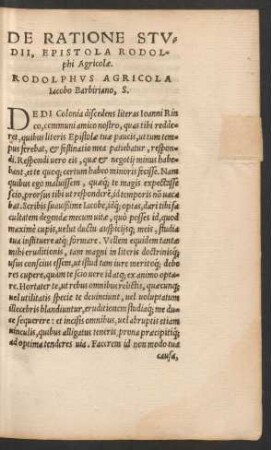 DE RATIONE STV-
DII, EPISTOLA RODOL-
phi Agricolæ.
RODOLPHVS AGRICOLA
Iacobo Barbiriano, S.
DEDI Colonia discedens literas Ioanni Rin
co, communi amico nostro, quas tibi redde-
ret, quibus literis Epistolæ tuæ paucis, ut tum tem-
pus ferebat, & festinatio mea patiebatur, respon-
di. Respondi uero eis, quæ & negotij minus habe-
bant, et e quoq; certum habeo minoris fuisse. Nam
quibus ego maluissem, quæq; te magis expectasse
scio, prorsus tibi ut responderē, id temporis nō uacæ
bat. Scribis suauissime Iacobe, idq; optas, dari tibi fa
cultatem degendæ mecum uitæ, quò possis id, quod
maximè cupis, uel ut ductu auspicijsq; meis, studia
tua instituere atq; formare. Vellem equidem tantæ
mihi eruditionis, tam magni in literis doctrinæq;
usus conscius essem, ut istud tam iure meritoq; debe
res cupere, quàm te scio uere id atq; ex animo opta-
re. Hortater te, ut rebus omnibus relictis, quæcunq;
uel utilitatis specie te deuinciunt, uel uoluptatum
illecebris blandiuntur, eruditionem studiaq; me du-
ce sequerere: et incisis omnibus, uel abruptis etiam
uinculis, quibus alligatus teneris, prona præcipitiq;
ad optima tenderes uia. Facerem id non modo tua
causa,